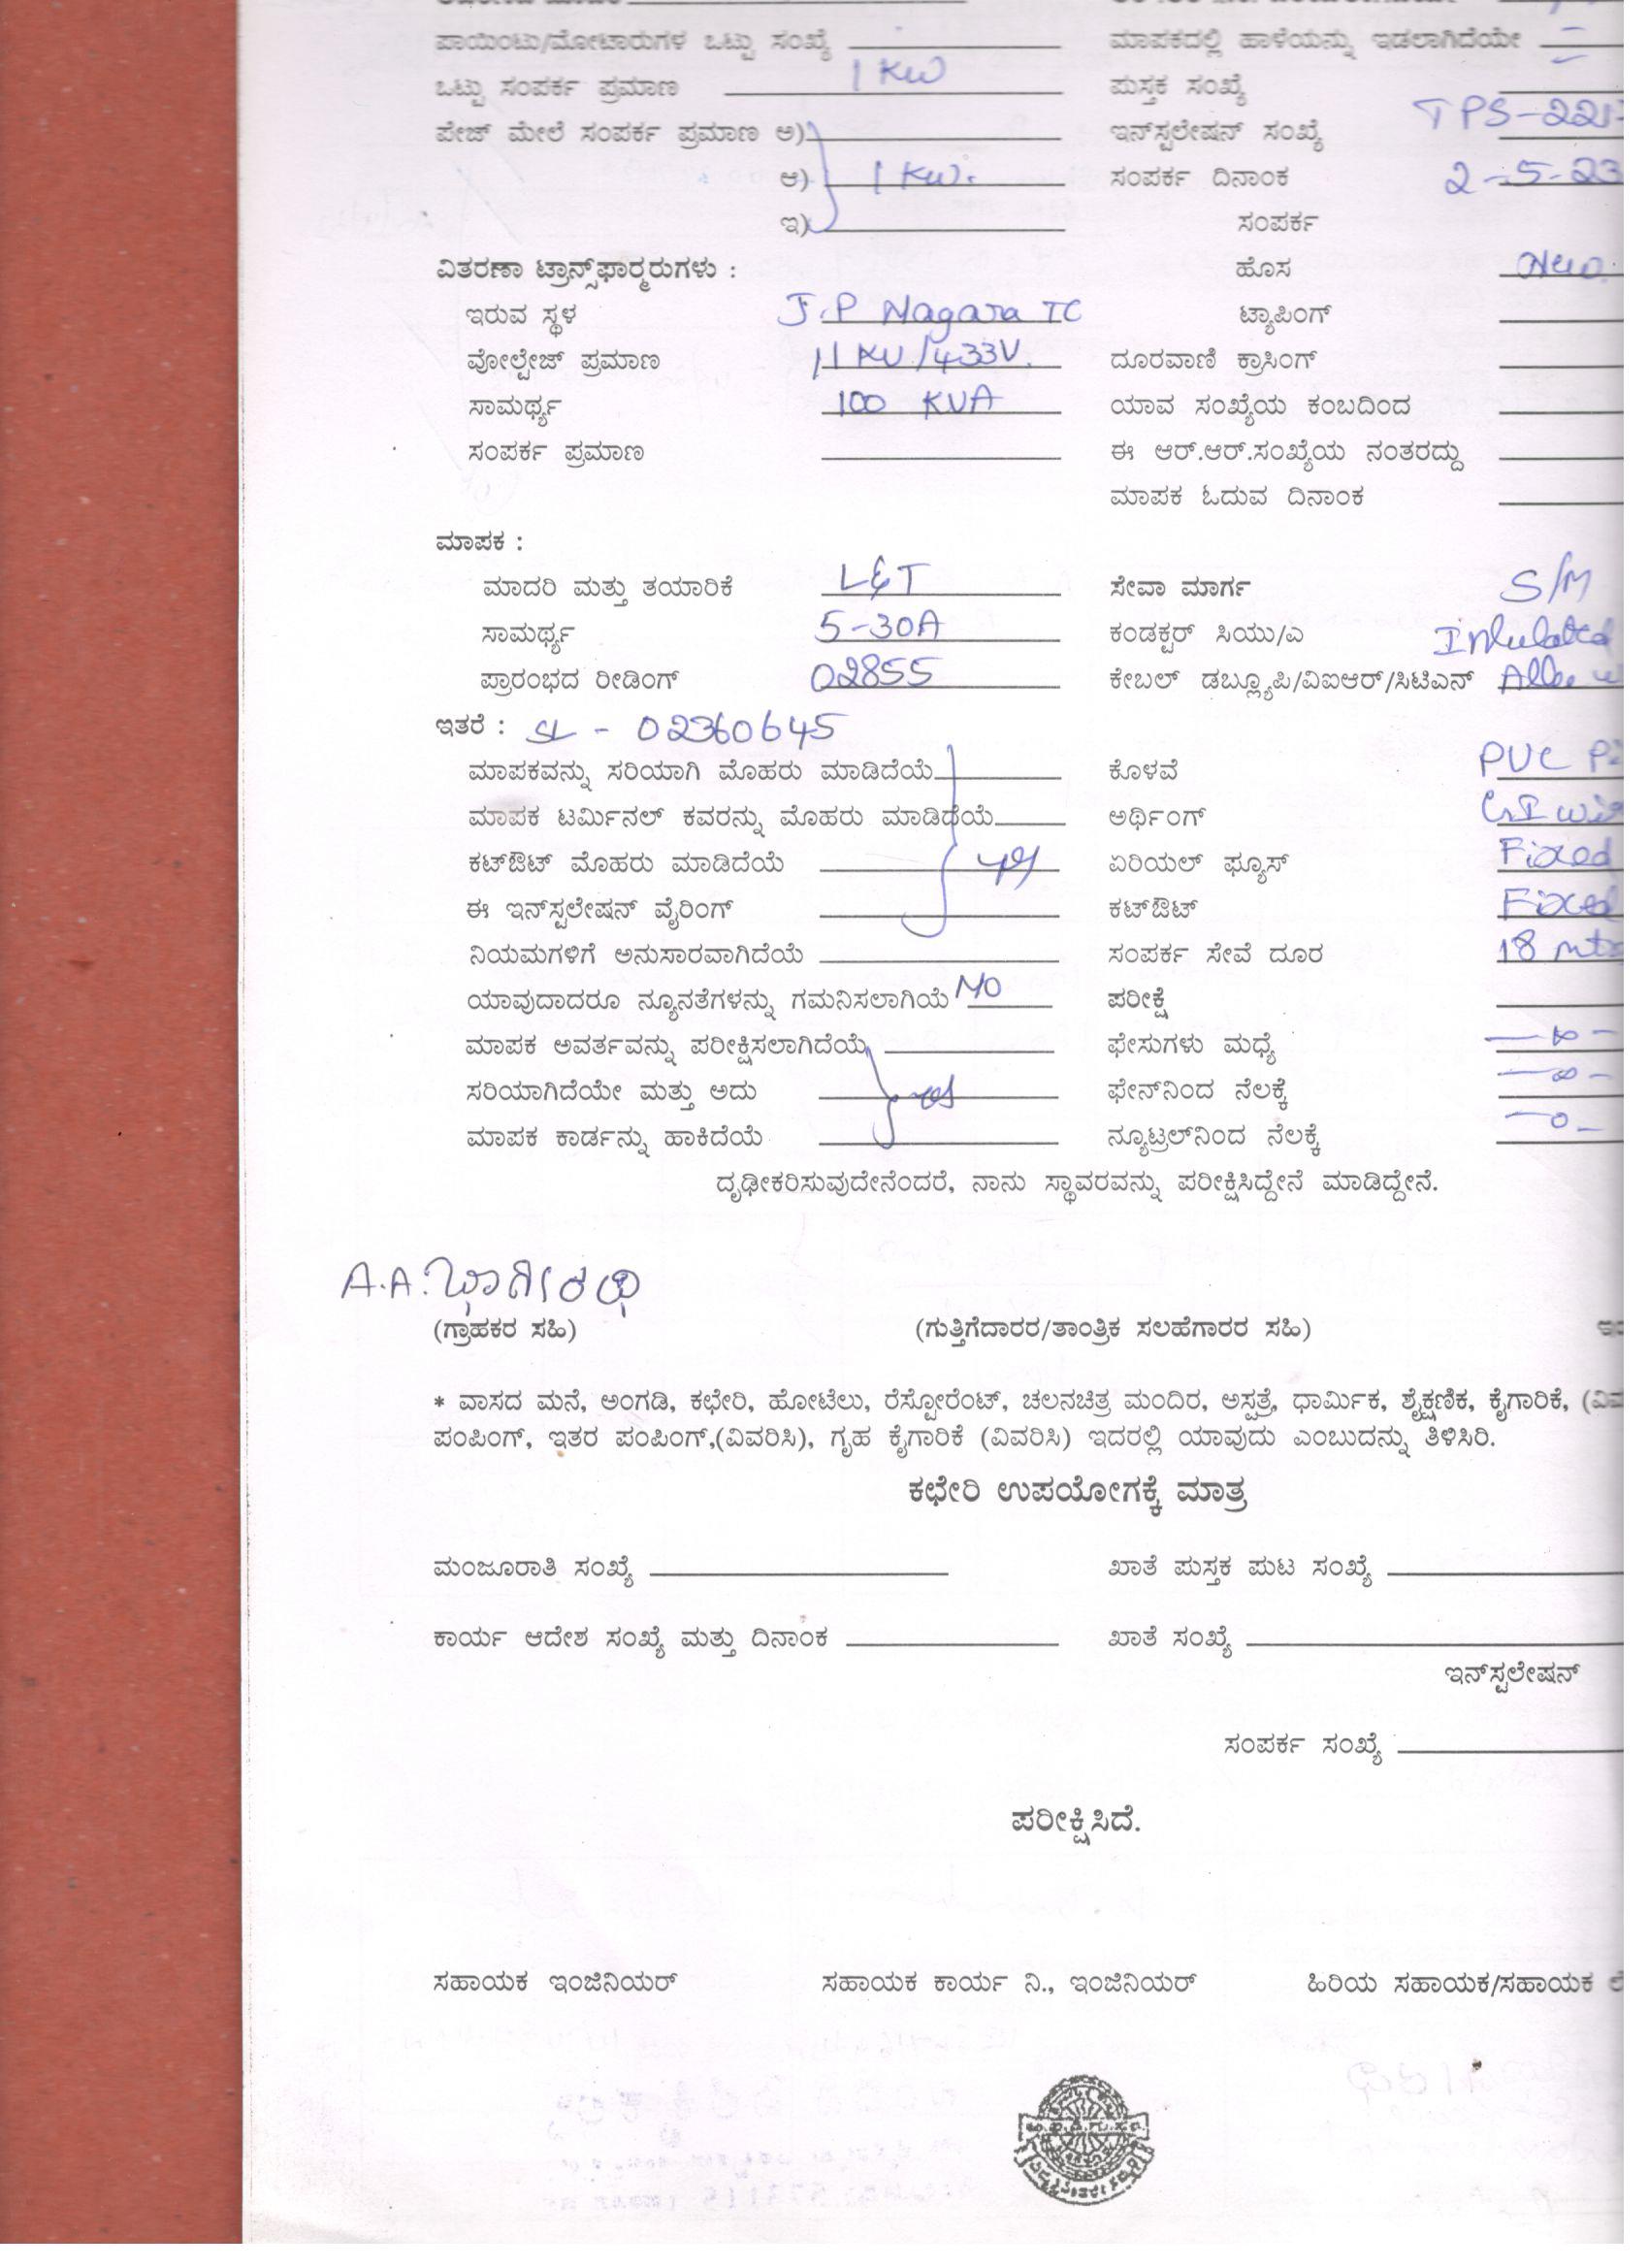 ಪಾಯಿಂಟು/ಮೋಟಾರುಗಳ ಒಟ್ಟು ಸಂಖ್ಯೆ ಮಾಪಕದಲ್ಲಿ ಹಾಳೆಯನ್ನು ಇಡಲಾಗಿದೆಯೇ
ಒಟ್ಟು ಸಂಪರ್ಕ ಪ್ರಮಾಣ 1 KW ಪುಸ್ತಕ ಸಂಖ್ಯೆ
ಪೇಜ್ ಮೇಲೆ ಸಂಪರ್ಕ ಪ್ರಮಾಣ ಅ) ಇನ್‌ಸ್ಟಲೇಷನ್ ಸಂಖ್ಯೆ TPS-221
ಆ) 1 KW. ಸಂಪರ್ಕ ದಿನಾಂಕ 2-5-23
ಇ) ಸಂಪರ್ಕ
ವಿತರಣಾ ಟ್ರಾನ್ಸ್‌ಫಾರ್ಮರುಗಳು : ಹೊಸ New.
ಇರುವ ಸ್ಥಳ J.P Nagara TC ಟ್ಯಾಪಿಂಗ್
ವೋಲ್ಟೇಜ್ ಪ್ರಮಾಣ 11 KV/433V. ದೂರವಾಣಿ ಕ್ರಾಸಿಂಗ್
ಸಾಮರ್ಥ್ಯ 100 KVA ಯಾವ ಸಂಖ್ಯೆಯ ಕಂಬದಿಂದ
ಸಂಪರ್ಕ ಪ್ರಮಾಣ ಈ ಆರ್.ಆರ್.ಸಂಖ್ಯೆಯ ನಂತರದ್ದು
ಮಾಪಕ ಓದುವ ದಿನಾಂಕ
ಮಾಪಕ :
ಮಾದರಿ ಮತ್ತು ತಯಾರಿಕೆ L&T ಸೇವಾ ಮಾರ್ಗ S/M
ಸಾಮರ್ಥ್ಯ 5-30A ಕಂಡಕ್ಟರ್ ಸಿಯು/ಎ
ಪ್ರಾರಂಭದ ರೀಡಿಂಗ್ 02855 ಕೇಬಲ್ ಡಬ್ಲ್ಯೂಪಿ/ವಿಐಆರ್/ಸಿಟಿಎನ್
ಇತರೆ : SL - 02360645
ಮಾಪಕವನ್ನು ಸರಿಯಾಗಿ ಮೊಹರು ಮಾಡಿದೆಯೆ ಕೊಳವೆ PVC
ಮಾಪಕ ಟರ್ಮಿನಲ್ ಕವರನ್ನು ಮೊಹರು ಮಾಡಿದೆಯೆ ಅರ್ಥಿಂಗ್ GI
ಕಟ್‌ಔಟ್ ಮೊಹರು ಮಾಡಿದೆಯೆ ಏರಿಯಲ್ ಫ್ಯೂಸ್ Fixed
ಈ ಇನ್‌ಸ್ಟಲೇಷನ್ ವೈರಿಂಗ್ ಕಟ್‌ಔಟ್ Fixed
ನಿಯಮಗಳಿಗೆ ಅನುಸಾರವಾಗಿದೆಯೆ ಸಂಪರ್ಕ ಸೇವೆ ದೂರ 18
ಯಾವುದಾದರೂ ನ್ಯೂನತೆಗಳನ್ನು ಗಮನಿಸಲಾಗಿಯೆ NO ಪರೀಕ್ಷೆ
ಮಾಪಕ ಅವರ್ತವನ್ನು ಪರೀಕ್ಷಿಸಲಾಗಿದೆಯೆ ಫೇಸುಗಳು ಮಧ್ಯೆ
ಸರಿಯಾಗಿದೆಯೇ ಮತ್ತು ಅದು yes ಫೇನ್‌ನಿಂದ ನೆಲಕ್ಕೆ
ಮಾಪಕ ಕಾರ್ಡನ್ನು ಹಾಕಿದೆಯೆ ನ್ಯೂಟ್ರಲ್‌ನಿಂದ ನೆಲಕ್ಕೆ
ದೃಢೀಕರಿಸುವುದೇನೆಂದರೆ, ನಾನು ಸ್ಥಾವರವನ್ನು ಪರೀಕ್ಷಿಸಿದ್ದೇನೆ ಮಾಡಿದ್ದೇನೆ.
A.A.ಭಾಗೀರಥಿ
(ಗ್ರಾಹಕರ ಸಹಿ) (ಗುತ್ತಿಗೆದಾರರ/ತಾಂತ್ರಿಕ ಸಲಹೆಗಾರರ ಸಹಿ)
* ವಾಸದ ಮನೆ, ಅಂಗಡಿ, ಕಛೇರಿ, ಹೋಟೆಲು, ರೆಸ್ಟೋರೆಂಟ್, ಚಲನಚಿತ್ರ ಮಂದಿರ, ಅಸ್ಪತ್ರೆ, ಧಾರ್ಮಿಕ, ಶೈಕ್ಷಣಿಕ, ಕೈಗಾರಿಕೆ,
ಪಂಪಿಂಗ್, ಇತರ ಪಂಪಿಂಗ್,(ವಿವರಿಸಿ), ಗೃಹ ಕೈಗಾರಿಕೆ (ವಿವರಿಸಿ) ಇದರಲ್ಲಿ ಯಾವುದು ಎಂಬುದನ್ನು ತಿಳಿಸಿರಿ.
ಕಛೇರಿ ಉಪಯೋಗಕ್ಕೆ ಮಾತ್ರ
ಮಂಜೂರಾತಿ ಸಂಖ್ಯೆ ಖಾತೆ ಪುಸ್ತಕ ಪುಟ ಸಂಖ್ಯೆ
ಕಾರ್ಯ ಆದೇಶ ಸಂಖ್ಯೆ ಮತ್ತು ದಿನಾಂಕ ಖಾತೆ ಸಂಖ್ಯೆ
ಇನ್‌ಸ್ಟಲೇಷನ್
ಸಂಪರ್ಕ ಸಂಖ್ಯೆ
ಪರೀಕ್ಷಿಸಿದೆ.
ಸಹಾಯಕ ಇಂಜಿನಿಯರ್ ಸಹಾಯಕ ಕಾರ್ಯ ನಿ., ಇಂಜಿನಿಯರ್ ಹಿರಿಯ ಸಹಾಯಕ/ಸಹಾಯಕ